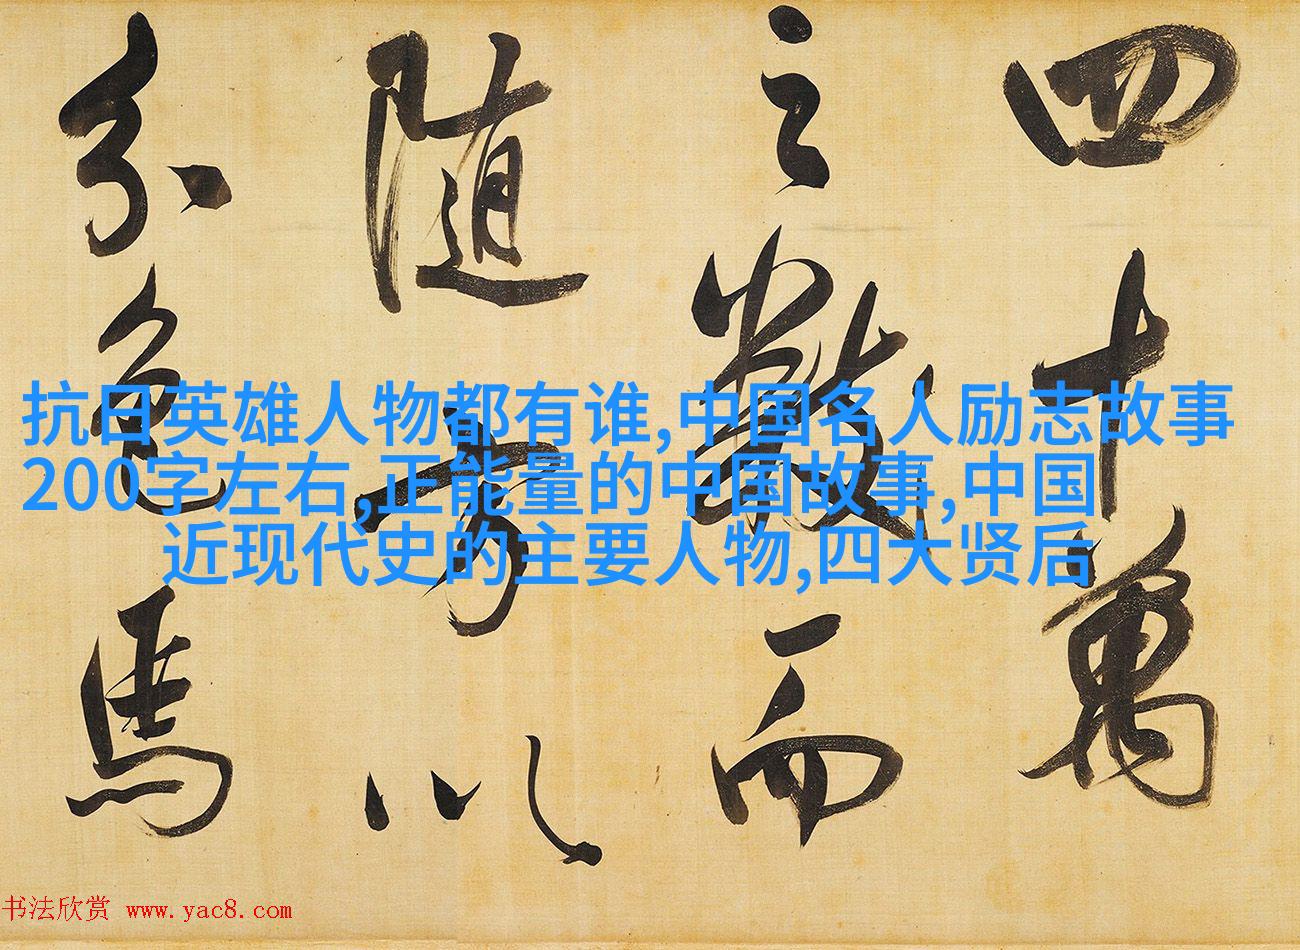 四十萬
之數而
随方以
分色馬
抗日英雄人物都有谁,中国名人励志故事
200字左右,正能量的中国故事,中国
近现代史的主要人物,四大贤后
书法欣赏 www.yac8.com